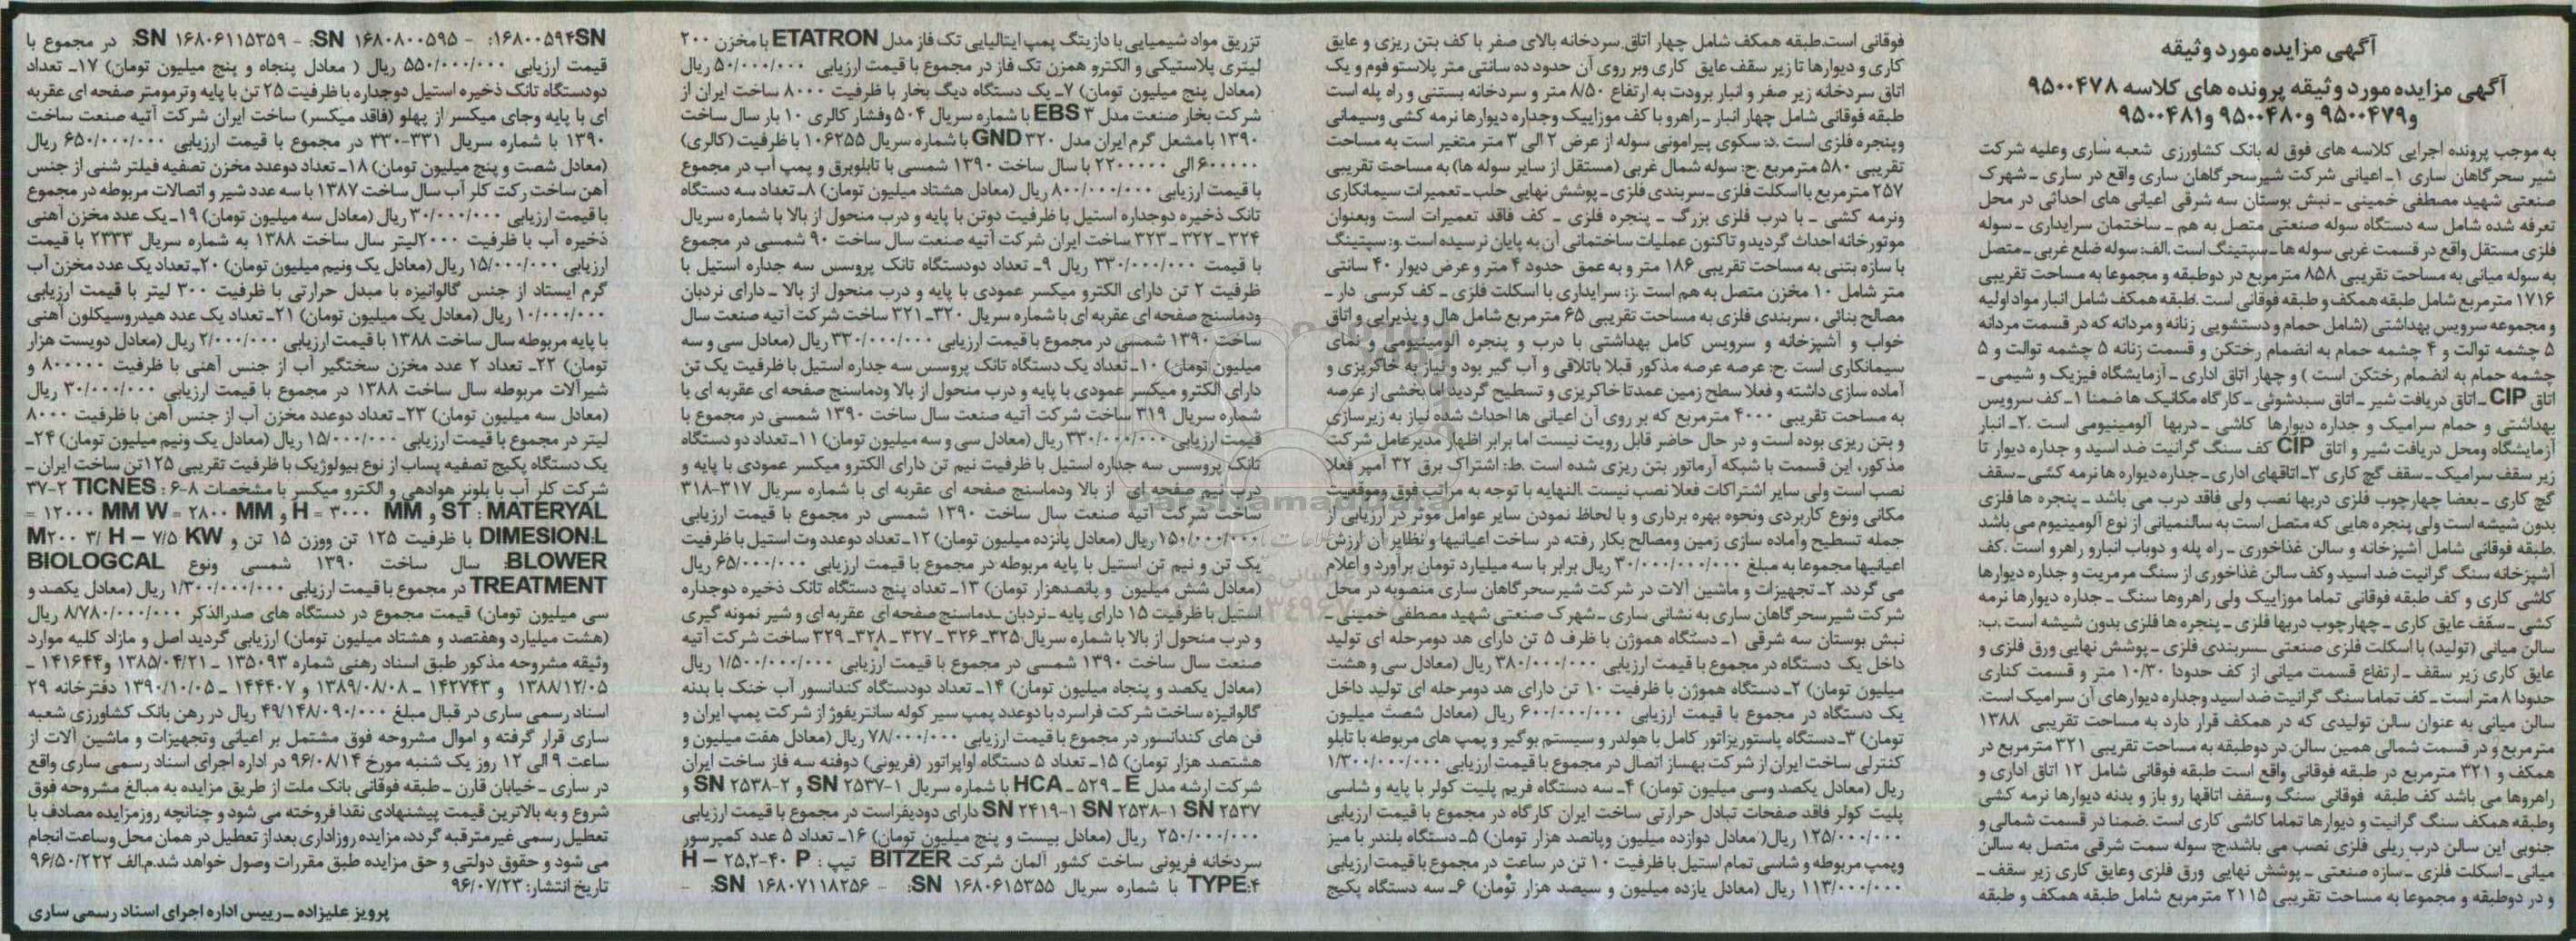 آگهی مزایده مورد وثیقه
آگهی مزایده مورد وثیقه پرونده های کلاسه ۹۵۰۰۴۷۸
و۹۵۰۰۴۷۹ و۹۵۰۰۴۸۰ و۹۵۰۰۴۸۱
به موجب پرونده اجرایی کلاسه های فوق له بانک کشاورزی شعبه ساری وعلیه شرکت
شیر سحرگاهان ساری ۱ـ اعیانی شرکت شیرسحرگاهان ساری واقع در ساری ـ شهرک
صنعتی شهید مصطفی خمینی ـ نبش بوستان سه شرقی اعیانی های احداثی در محل
تعرفه شده شامل سه دستگاه سوله صنعتی متصل به هم ـ ساختمان سرایداری ـ سوله
فلزی مستقل واقع در قسمت غربی سوله ها ـ سپتینگ است .الف: سوله ضلع غربی ـ متصل
به سوله میانی به مساحت تقریبی ۸۵۸ مترمربع در دوطبقه و مجموعا به مساحت تقریبی
۱۷۱۶ مترمربع شامل طبقه همکف و طبقه فوقانی است .طبقه همکف شامل انبار مواد اولیه
و مجموعه سرویس بهداشتی (شامل حمام و دستشویی زنانه و مردانه که در قسمت مردانه
۵ چشمه توالت و ۴ چشمه حمام به انضمام رختکن و قسمت زنانه ۵ چشمه توالت و ۵
چشمه حمام به انضمام رختکن است ) و چهار اتاق اداری ـ آزمایشگاه فیزیک و شیمی ـ
اتاق CIP ـ اتاق دریافت شیر ـ اتاق سبدشوئی ـ کارگاه مکانیک ها ضمنا ۱ـ کف سرویس
بهداشتی و حمام سرامیک و جداره دیوارها کاشی ـ دربها آلومینیومی است .۲ـ انبار
آزمایشگاه ومحل دریافت شیر و اتاق CIP کف سنگ گرانیت ضد اسید و جداره دیوار تا
زیر سقف سرامیک ـ سقف گچ کاری ۳ـ اتاقهای اداری ـ جداره دیواره ها نرمه کشی ـ سقف
گچ کاری ـ بعضا چهارچوب فلزی دربها نصب ولی فاقد درب می باشد ـ پنجره ها فلزی
بدون شیشه است ولی پنجره هایی که متصل است به سالنمیانی از نوع آلومینیوم می باشد
.طبقه فوقانی شامل آشپزخانه و سالن غذاخوری ـ راه پله و دوباب انبارو راهرو است .کف
آشپزخانه سنگ گرانیت ضد اسید وکف سالن غذاخوری از سنگ مرمریت و جداره دیوارها
کاشی کاری و کف طبقه فوقانی تماما موزاییک ولی راهروها سنگ ـ جداره دیوارها نرمه
کشی ـ سقف عایق کاری ـ چهارچوب دربها فلزی ـ پنجره ها فلزی بدون شیشه است .ب:
سالن میانی (تولید) با اسکلت فلزی صنعتی ـ سربندی فلزی ـ پوشش نهایی ورق فلزی و
عایق کاری زیر سقف ـ ارتفاع قسمت میانی از کف حدودا ۱۰/۳۰ متر و قسمت کناری
حدودا ۸ متر است ـ کف تماما سنگ گرانیت ضد اسید وجداره دیوارهای آن سرامیک است.
سالن میانی به عنوان سالن تولیدی که در همکف قرار دارد به مساحت تقریبی ۱۳۸۸
مترمربع و در قسمت شمالی همین سالن در دوطبقه به مساحت تقریبی ۳۲۱ مترمربع در
همکف و ۳۲۱ مترمربع در طبقه فوقانی واقع است طبقه فوقانی شامل ۱۲ اتاق اداری و
راهروها می باشد کف طبقه فوقانی سنگ وسقف اتاقها رو باز و بدنه دیوارها نرمه کشی
وطبقه همکف سنگ گرانیت و دیوارها تماما کاشی کاری است .ضمنا در قسمت شمالی و
جنوبی این سالن درب ریلی فلزی نصب می باشد.ج: سوله سمت شرقی متصل به سالن
میانی ـ اسکلت فلزی ـ سازه صنعتی ـ پوشش نهایی ورق فلزی وعایق کاری زیر سقف ـ
و در دوطبقه و مجموعا به مساحت تقریبی ۲۱۱۵ مترمربع شامل طبقه همکف و طبقه
فوقانی است.طبقه همکف شامل چهار اتاق سردخانه بالای صفر با کف بتن ریزی و عایق
کاری و دیوارها تا زیر سقف عایق کاری وبر روی آن حدود ده سانتی متر پلاستو فوم و یک
اتاق سردخانه زیر صفر و انبار برودت به ارتفاع ۸/۵۰ متر و سردخانه بستنی و راه پله است
طبقه فوقانی شامل چهار انبار ـ راهرو با کف موزاییک وجداره دیوارها نرمه کشی وسیمانی
وپنجره فلزی است .د: سکوی پیرامونی سوله از عرض ۲ الی ۳ متر متغیر است به مساحت
تقریبی ۵۸۰ مترمربع .ج: سوله شمال غربی (مستقل از سایر سوله ها) به مساحت تقریبی
۲۵۷ مترمربع با اسکلت فلزی ـ سربندی فلزی ـ پوشش نهایی حلب ـ تعمیرات سیمانکاری
ونرمه کشی ـ با درب فلزی بزرگ ـ پنجره فلزی ـ کف فاقد تعمیرات است وبعنوان
موتورخانه احداث گردید و تاکنون عملیات ساختمانی آن به پایان نرسیده است .و: سپتینگ
با سازه بتنی به مساحت تقریبی ۱۸۶ متر و به عمق حدود ۴ متر و عرض دیوار ۴۰ سانتی
متر شامل ۱۰ مخزن متصل به هم است .ز: سرایداری با اسکلت فلزی ـ کف کرسی دار ـ
مصالح بنائی ، سربندی فلزی به مساحت تقریبی ۶۵ مترمربع شامل هال و پذیرایی و اتاق
خواب و آشپزخانه و سرویس کامل بهداشتی با درب و پنجره آلومینیومی و نمای
سیمانکاری است .ح: عرصه عرصه مذکور قبلا باتلاقی و آب گیر بود و نیاز به خاکریزی و
آماده سازی داشته و فعلا سطح زمین عمدتا خاکریزی و تسطیح گردید اما بخشی از عرصه
به مساحت تقریبی ۴۰۰۰ مترمربع که بر روی آن اعیانی ها احداث شده نیاز به زیرسازی
و بتن ریزی بوده است و در حال حاضر قابل رویت نیست اما برابر اظهار مدیرعامل شرکت
مذکور، این قسمت با شبکه آرماتور بتن ریزی شده است .ط: اشتراک برق ۳۲ آمپر فعلا
نصب است ولی سایر اشتراکات فعلا نصب نیست .النهایه با توجه به مراتب فوق وموقعیت
مکانی ونوع کاربردی ونحوه بهره برداری و با لحاظ نمودن سایر عوامل موثر در ارزیابی از
جمله تسطیح وآماده سازی زمین ومصالح بکار رفته در ساخت اعیانیها و نظایر آن ارزش
اعیانیها مجموعا به مبلغ ۳۰/۰۰۰/۰۰۰/۰۰۰ ریال برابر با سه میلیارد تومان برآورد و اعلام
می گردد. ۲ـ تجهیزات و ماشین آلات در شرکت شیرسحرگاهان ساری منصوبه در محل
شرکت شیرسحرگاهان ساری به نشانی ساری ـ شهرک صنعتی شهید مصطفی خمینی ـ
نبش بوستان سه شرقی ۱ـ دستگاه هموژن با ظرف ۵ تن دارای هد دومرحله ای تولید
داخل یک دستگاه در مجموع با قیمت ارزیابی ۳۸۰/۰۰۰/۰۰۰ ریال (معادل سی و هشت
میلیون تومان) ۲ـ دستگاه هموژن با ظرفیت ۱۰ تن دارای هد دومرحله ای تولید داخل
یک دستگاه در مجموع با قیمت ارزیابی ۶۰۰/۰۰۰/۰۰۰ ریال (معادل شصت میلیون
تومان) ۳ـ دستگاه پاستوریزاتور کامل با هولدر و سیستم بوگیر و پمپ های مربوطه با تابلو
کنترلی ساخت ایران از شرکت بهساز اتصال در مجموع با قیمت ارزیابی ۱/۳۰۰/۰۰۰/۰۰۰
ریال (معادل یکصد وسی میلیون تومان) ۴ـ سه دستگاه فریم پلیت کولر با پایه و شاسی
پلیت کولر فاقد صفحات تبادل حرارتی ساخت ایران کارگاه در مجموع با قیمت ارزیابی
۱۲۵/۰۰۰/۰۰۰ ریال( معادل دوازده میلیون وپانصد هزار تومان) ۵ـ دستگاه بلندر با میز
وپمپ مربوطه و شاسی تمام استیل با ظرفیت ۱۰ تن در ساعت در مجموع با قیمت ارزیابی
۱۱۳/۰۰۰/۰۰۰ ریال (معادل یازده میلیون و سیصد هزار تومان) ۶ـ سه دستگاه پکیج
تزریق مواد شیمیایی با دازیتگ پمپ ایتالیایی تک فاز مدل ETATRON با مخزن ۲۰۰
لیتری پلاستیکی و الکترو همزن تک فاز در مجموع با قیمت ارزیابی ۵۰/۰۰۰/۰۰۰ ریال
(معادل پنج میلیون تومان) ۷ـ یک دستگاه دیگ بخار با ظرفیت ۸۰۰۰ ساخت ایران از
شرکت بخار صنعت مدل EBS ۳ با شماره سریال ۵۰۴ وفشار کالری ۱۰ بار سال ساخت
۱۳۹۰ با مشعل گرم ایران مدل GND ۳۲۰ با شماره سریال ۱۰۶۲۵۵ با ظرفیت (کالری)
۶۰۰۰۰۰ الی ۲۲۰۰۰۰۰ با سال ساخت ۱۳۹۰ شمسی با تابلوبرق و پمپ آب در مجموع
با قیمت ارزیابی ۸۰۰/۰۰۰/۰۰۰ ریال (معادل هشتاد میلیون تومان) ۸ـ تعداد سه دستگاه
تانک ذخیره دوجداره استیل با ظرفیت دوتن با پایه و درب منحول از بالا با شماره سریال
۳۲۴ ـ ۳۲۲ ـ ۳۲۳ ساخت ایران شرکت آتیه صنعت سال ساخت ۹۰ شمسی در مجموع
با قیمت ۳۳۰/۰۰۰/۰۰۰ ریال ۹ـ تعداد دودستگاه تانک پروسس سه جداره استیل با
ظرفیت ۲ تن دارای الکترو میکسر عمودی با پایه و درب منحول از بالا ـ دارای نردبان
ودماسنج صفحه ای عقربه ای با شماره سریال ۳۲۰ـ ۳۲۱ ساخت شرکت آتیه صنعت سال
ساخت ۱۳۹۰ شمسی در مجموع با قیمت ارزیابی ۳۳۰/۰۰۰/۰۰۰ ریال (معادل سی و سه
میلیون تومان) ۱۰ـ تعداد یک دستگاه تانک پروسس سه جداره استیل با ظرفیت یک تن
دارای الکترو میکسر عمودی با پایه و درب منحول از بالا ودماسنج صفحه ای عقربه ای با
شماره سریال ۳۱۹ ساخت شرکت آتیه صنعت سال ساخت ۱۳۹۰ شمسی در مجموع با
قیمت ارزیابی ۳۳۰/۰۰۰/۰۰۰ ریال (معادل سی و سه میلیون تومان) ۱۱ـ تعداد دو دستگاه
تانک پروسس سه جداره استیل با ظرفیت نیم تن دارای الکترو میکسر عمودی با پایه و
درب نیم صفحه ای از بالا ودماسنج صفحه ای عقربه ای با شماره سریال ۳۱۷-۳۱۸
ساخت شرکت آتیه صنعت سال ساخت ۱۳۹۰ شمسی در مجموع با قیمت ارزیابی
۱۵۰/۰۰۰/۰۰۰ ریال (معادل پانزده میلیون تومان) ۱۲ـ تعداد دوعدد وت استیل با ظرفیت
یک تن و نیم تن استیل با پایه مربوطه در مجموع با قیمت ارزیابی ۶۵/۰۰۰/۰۰۰ ریال
(معادل شش میلیون و پانصدهزار تومان) ۱۳ـ تعداد پنج دستگاه تانک ذخیره دوجداره
استیل با ظرفیت ۱۵ دارای پایه ـ نردبان ـ دماسنج صفحه ای عقربه ای و شیر نمونه گیری
و درب منحول از بالا با شماره سریال ۳۲۵ـ ۳۲۶ ـ ۳۲۷ ـ ۳۲۸ـ ۳۲۹ ساخت شرکت آتیه
صنعت سال ساخت ۱۳۹۰ شمسی در مجموع با قیمت ارزیابی ۱/۵۰۰/۰۰۰/۰۰۰ ریال
(معادل یکصد و پنجاه میلیون تومان) ۱۴ـ تعداد دودستگاه کندانسور آب خنک با بدنه
گالوانیزه ساخت شرکت فراسرد با دوعدد پمپ سیر کوله سانتریفوژ از شرکت پمپ ایران و
فن های کندانسور در مجموع با قیمت ارزیابی ۷۸/۰۰۰/۰۰۰ ریال (معادل هفت میلیون و
هشتصد هزار تومان) ۱۵ـ تعداد ۵ دستگاه اواپراتور (فریونی) دوفنه سه فاز ساخت ایران
شرکت ارشه مدل HCA ـ ۵۲۹ ـ E با شماره سریال SN ۲۵۳۷-۱ و SN ۲۵۳۸-۲ و
SN ۲۴۱۹-۱ SN ۲۵۳۸-۱ SN ۲۵۳۷ دارای دودیفراست در مجموع با قیمت ارزیابی
۲۵۰/۰۰۰/۰۰۰ ریال (معادل بیست و پنج میلیون تومان) ۱۶ـ تعداد ۵ عدد کمپرسور
سردخانه فریونی ساخت کشور آلمان شرکت BITZER تیپ : H – ۲۵,۲-۴۰ P
۴:TYPE با شماره سریال SN: ۱۶۸۰۶۱۵۳۵۵ - SN: ۱۶۸۰۷۱۱۸۲۵۶ -
SN۱۶۸۰۰۵۹۴: - SN: ۱۶۸۰۸۰۰۵۹۵ - SN: ۱۶۸۰۶۱۱۵۳۵۹ در مجموع با
قیمت ارزیابی ۵۵۰/۰۰۰/۰۰۰ ریال ( معادل پنجاه و پنج میلیون تومان) ۱۷ـ تعداد
دودستگاه تانک ذخیره استیل دوجداره با ظرفیت ۲۵ تن با پایه وترمومتر صفحه ای عقربه
ای با پایه وجای میکسر از پهلو (فاقد میکسر) ساخت ایران شرکت آتیه صنعت ساخت
۱۳۹۰ با شماره سریال ۳۳۱-۳۳۰ در مجموع با قیمت ارزیابی ۶۵۰/۰۰۰/۰۰۰ ریال
(معادل شصت و پنج میلیون تومان) ۱۸ـ تعداد دوعدد مخزن تصفیه فیلتر شنی از جنس
آهن ساخت رکت کلر آب سال ساخت ۱۳۸۷ با سه عدد شیر و اتصالات مربوطه در مجموع
با قیمت ارزیابی ۳۰/۰۰۰/۰۰۰ ریال (معادل سه میلیون تومان) ۱۹ـ یک عدد مخزن آهنی
ذخیره آب با ظرفیت ۲۰۰۰لیتر سال ساخت ۱۳۸۸ به شماره سریال ۲۳۳۳ با قیمت
ارزیابی ۱۵/۰۰۰/۰۰۰ ریال (معادل یک ونیم میلیون تومان) ۲۰ـ تعداد یک عدد مخزن آب
گرم ایستاد از جنس گالوانیزه با مبدل حرارتی با ظرفیت ۳۰۰ لیتر با قیمت ارزیابی
۱۰/۰۰۰/۰۰۰ ریال (معادل یک میلیون تومان) ۲۱ـ تعداد یک عدد هیدروسیکلون آهنی
با پایه مربوطه سال ساخت ۱۳۸۸ با قیمت ارزیابی ۲/۰۰۰/۰۰۰ ریال (معادل دویست هزار
تومان) ۲۲ـ تعداد ۲ عدد مخزن سختگیر آب از جنس آهنی با ظرفیت ۸۰۰۰۰۰ و
شیرآلات مربوطه سال ساخت ۱۳۸۸ در مجموع با قیمت ارزیابی ۳۰/۰۰۰/۰۰۰ ریال
(معادل سه میلیون تومان) ۲۳ـ تعداد دوعدد مخزن آب از جنس آهن با ظرفیت ۸۰۰۰
لیتر در مجموع با قیمت ارزیابی ۱۵/۰۰۰/۰۰۰ ریال (معادل یک ونیم میلیون تومان) ۲۴ـ
یک دستگاه پکیج تصفیه پساب از نوع بیولوژیک با ظرفیت تقریبی ۱۲۵تن ساخت ایران ـ
شرکت کلر آب با بلوئر هوادهی و الکترو میکسر با مشخصات ۸-۶ : TICNES ۳۷-۲
ST : MATERYAL و H = ۳۰۰۰ MM و W = ۲۸۰۰ MM و ۱۲۰۰۰ MM =
DIMESION:L با ظرفیت ۱۲۵ تن ووزن ۱۵ تن و M۲۰۰ ۳/ H – ۷/۵ KW
BLOWER: سال ساخت ۱۳۹۰ شمسی ونوع BIOLOGCAL
TREATMENT در مجموع با قیمت ارزیابی ۱/۳۰۰/۰۰۰/۰۰۰ ریال (معادل یکصد و
سی میلیون تومان) قیمت مجموع در دستگاه های صدرالذکر ۸/۷۸۰/۰۰۰/۰۰۰ ریال
(هشت میلیارد وهفتصد و هشتاد میلیون تومان) ارزیابی گردید اصل و مازاد کلیه موارد
وثیقه مشروحه مذکور طبق اسناد رهنی شماره ۱۳۵۰۹۳ ـ ۱۳۸۵/۰۴/۲۱ و۱۴۱۶۴۴ ـ
۱۳۸۸/۱۲/۰۵ و ۱۴۲۷۴۳ ـ ۱۳۸۹/۰۸/۰۸ و ۱۴۴۴۰۷ ـ ۱۳۹۰/۱۰/۰۵ دفترخانه ۲۹
اسناد رسمی ساری در قبال مبلغ ۴۹/۱۴۸/۰۹۰/۰۰۰ ریال در رهن بانک کشاورزی شعبه
ساری قرار گرفته و اموال مشروحه فوق مشتمل بر اعیانی وتجهیزات و ماشین آلات از
ساعت ۹ الی ۱۲ روز یک شنبه مورخ ۹۶/۰۸/۱۴ در اداره اجرای اسناد رسمی ساری واقع
در ساری ـ خیابان قارن ـ طبقه فوقانی بانک ملت از طریق مزایده به مبالغ مشروحه فوق
شروع و به بالاترین قیمت پیشنهادی نقدا فروخته می شود و چنانچه روزمزایده مصادف با
تعطیل رسمی غیرمترقبه گردد، مزایده روزاداری بعد از تعطیل در همان محل وساعت انجام
می شود و حقوق دولتی و حق مزایده طبق مقررات وصول خواهد شد.م.الف ۹۶/۵۰/۲۲۲
تاریخ انتشار: ۹۶/۰۷/۲۳
پرویز علیزاده ـ رییس اداره اجرای اسناد رسمی ساری